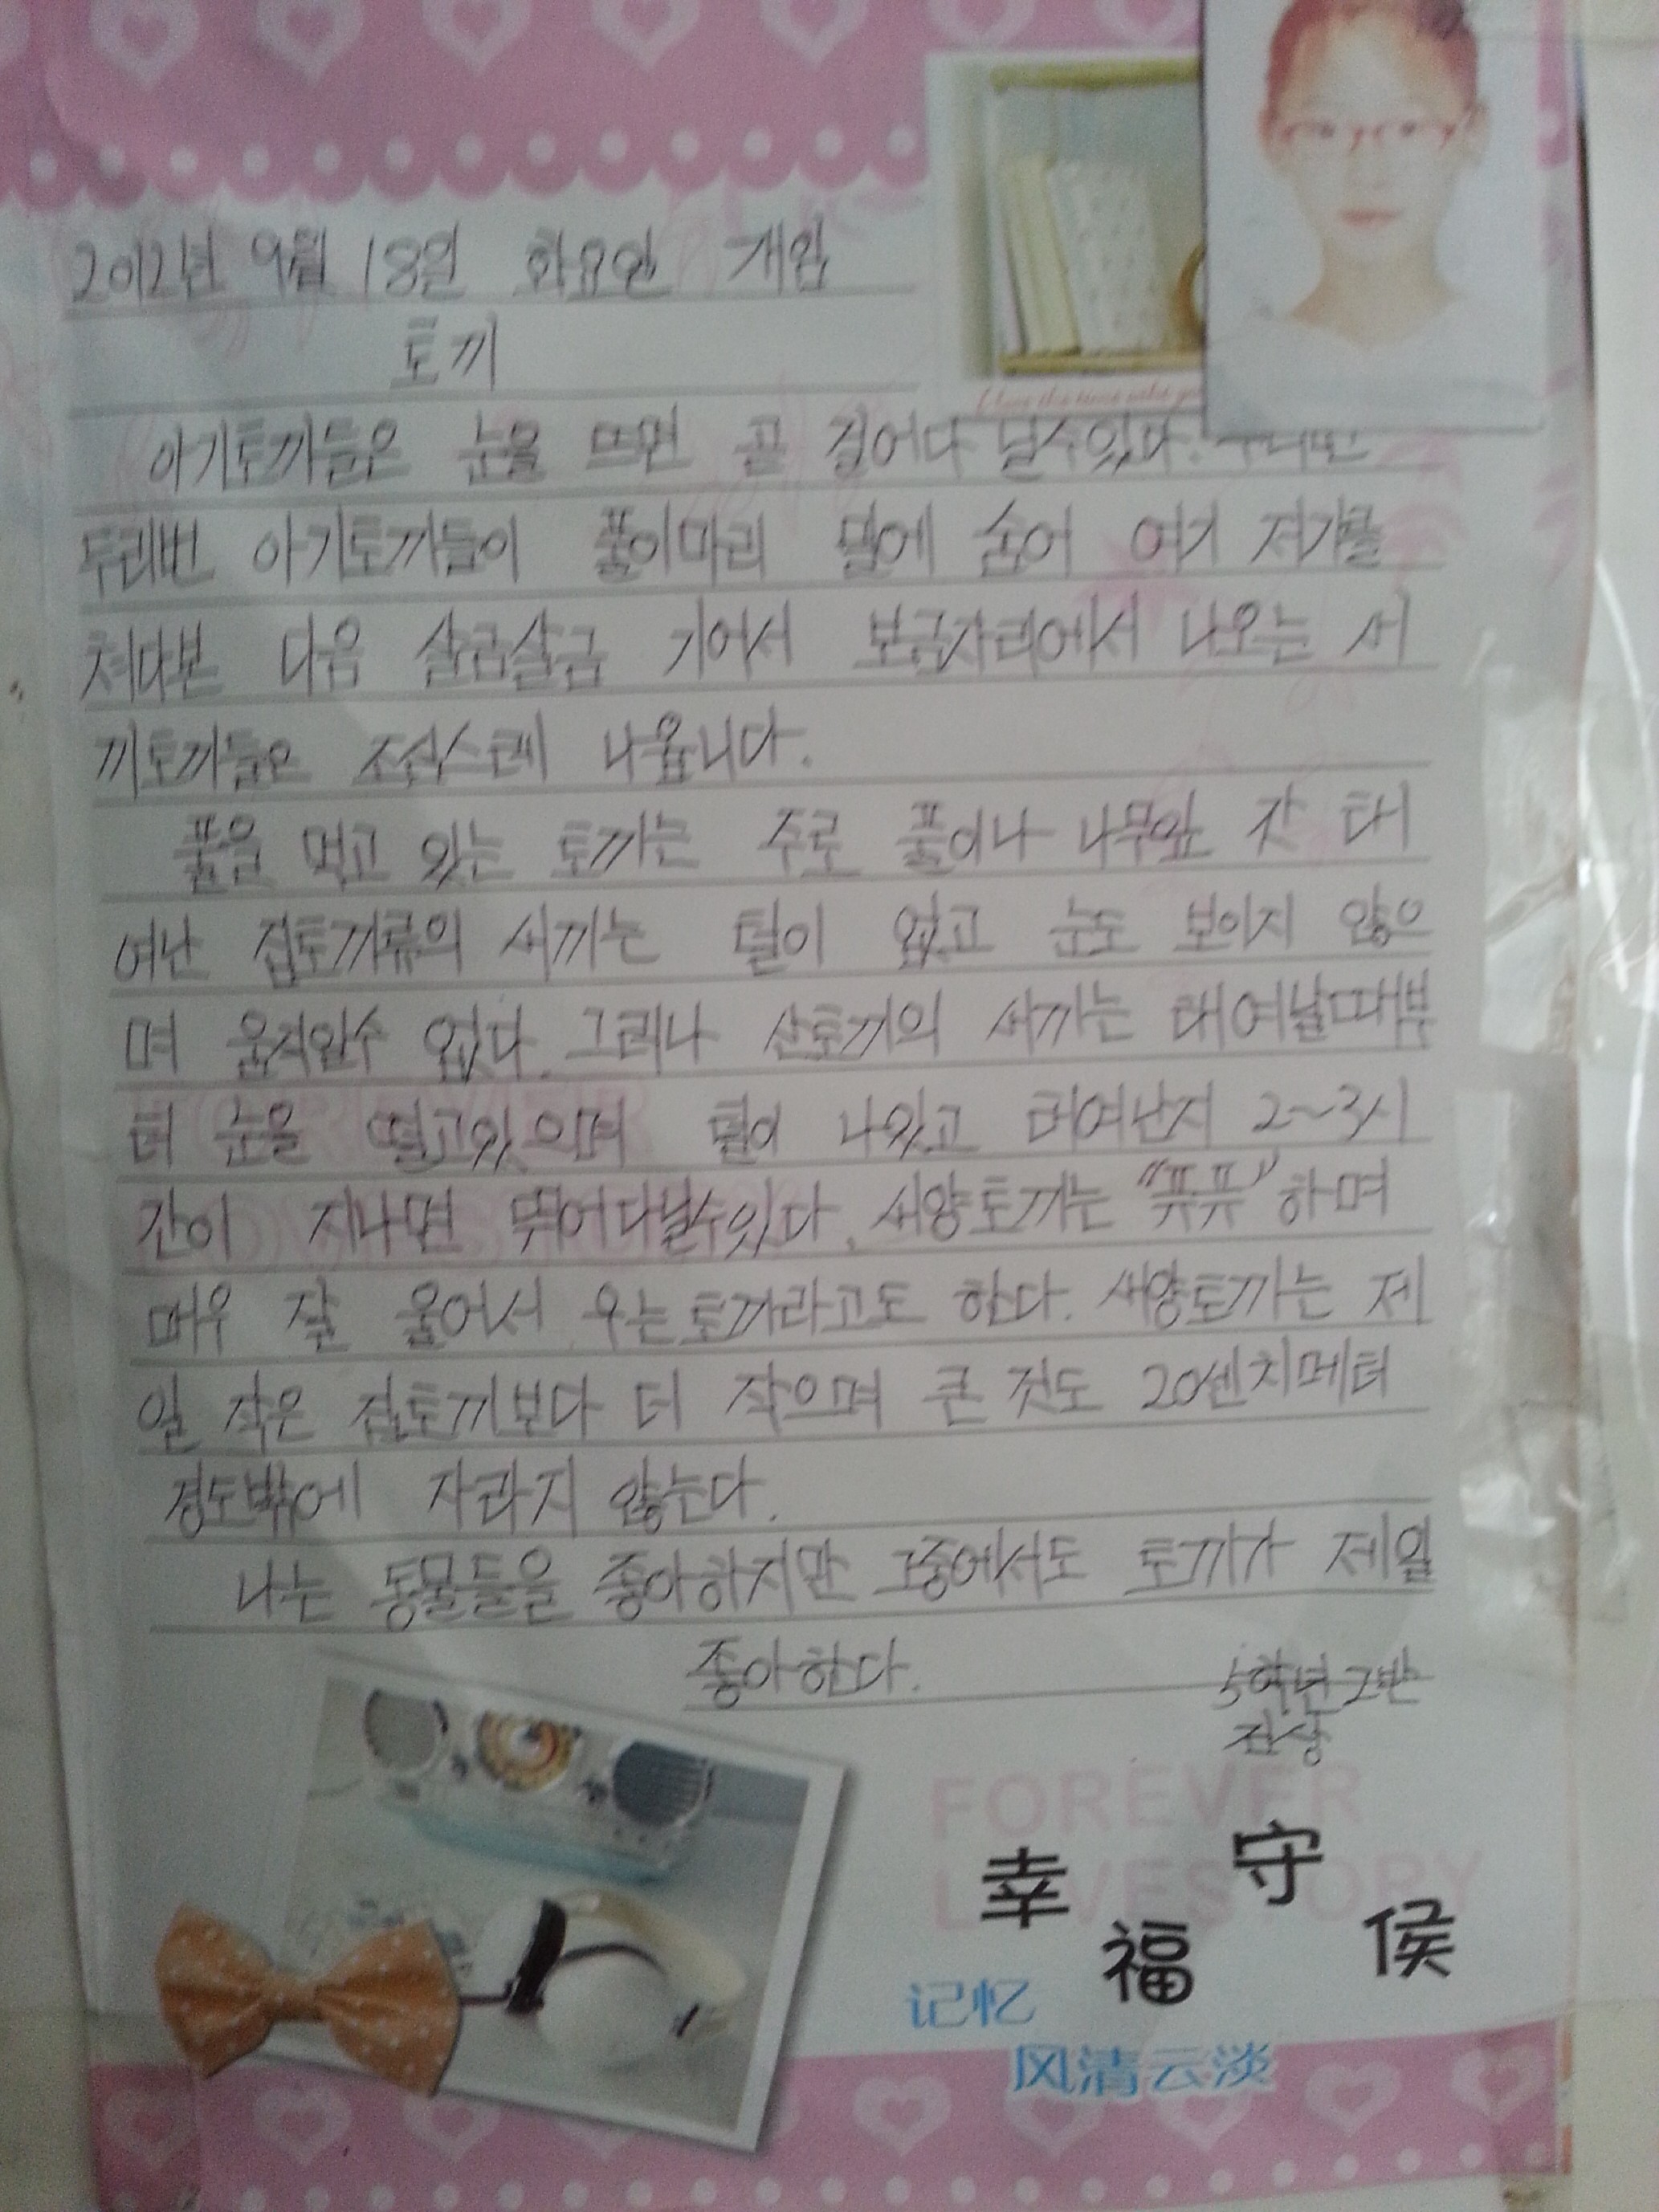 2012년 9월 18일 화요일 개임
토끼
아기토끼들은 눈을 뜨면 곧 걸어다 닐수있다.
두리번 아기토끼들이 풀이마리 밑에 숨어 여기 저기를
쳐다본 다음 살금살금 기어서 보금자리에서 나오는 새
끼토끼들은 조심스레 나옵니다.
풀을 먹고 있는 토끼는 주로 풀이나 나무잎 갓 태
여난 집토끼류의 새끼는 털이 없고 눈도 보이지 않으
며 움겨일수 없다. 그러나 산토끼의 새끼는 태여날때부
터 눈을 떨고있으며 털이 나있고 태여난지 2~3시
간이 지나면 뛰어다닐수있다. 새앙토끼는 "퓨퓨"하며
매우 잘 울어서 우는토끼라고도 한다. 새앙토끼는 제
일 작은 집토끼보다 더 작으며 큰 것도 20센치메터
정도밖에 자라지 않는다.
나는 동물들을 좋아하지만 그중에서도 토끼가 제일
좋아한다.
5학년 2반
FOREVER
LOVE STORY
幸福守侯
记忆
风清云淡